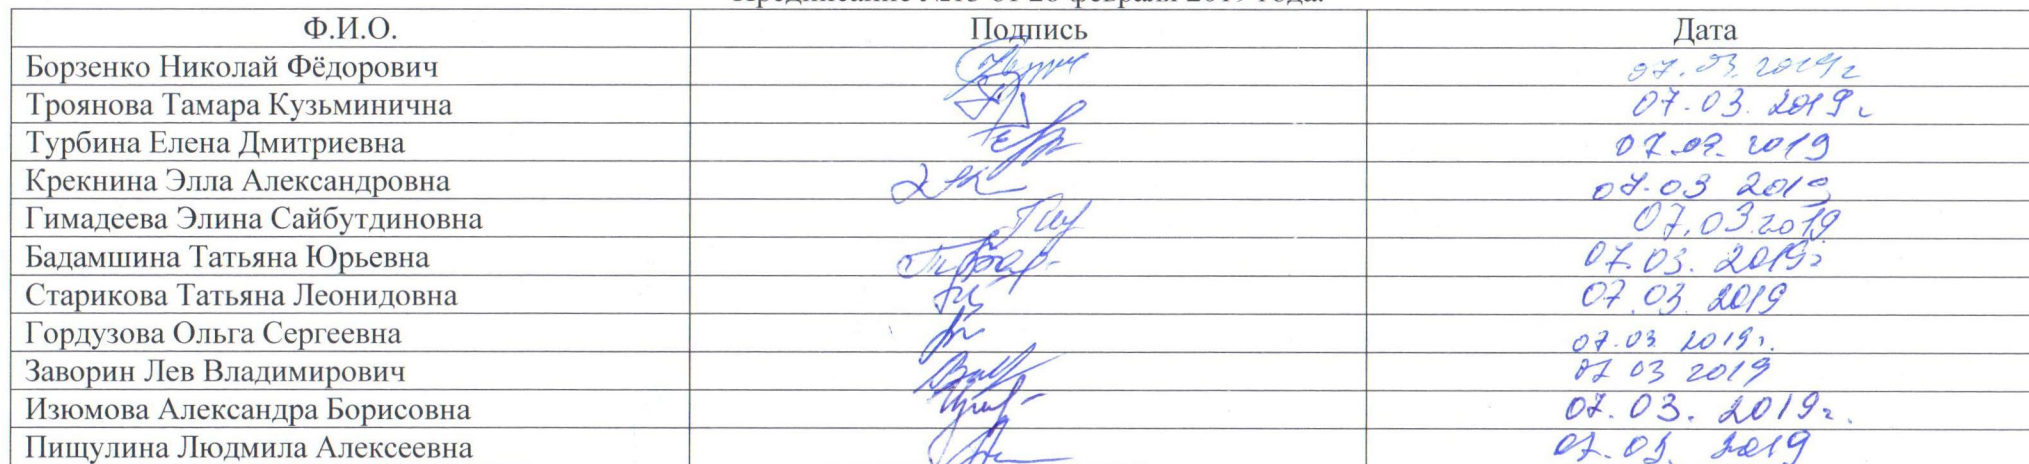 Предписание №13 от 26 февраля 2019 года.
Ф.И.О. Подпись Дата
Борзенко Николай Фёдорович 07.03.2019г
Троянова Тамара Кузьминична 07.03.2019г
Турбина Елена Дмитриевна 07.03.2019
Крекнина Элла Александровна 07.03 2019
Гимадеева Элина Сайбутдиновна 07.03.2019
Бадамшина Татьяна Юрьевна 07.03.2019г
Старикова Татьяна Леонидовна 07.03 2019
Гордузова Ольга Сергеевна 07.03 2019г.
Заворин Лев Владимирович 07 03 2019
Изюмова Александра Борисовна 07.03.2019г.
Пищулина Людмила Алексеевна 07.03.2019